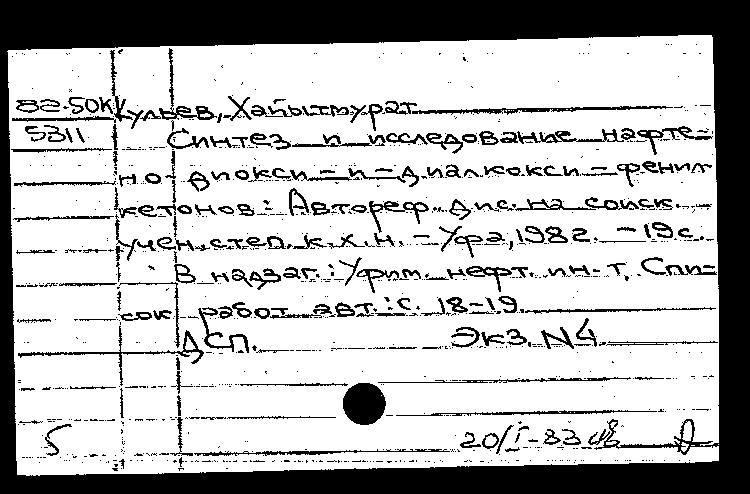 82-50К Кульев, Хапытмурат
5311 Синтез и исследование нафте-
но-диокси-и-диалкокси-фенил
кетонов: Автореф. дис. на соиск.
учен. степ. к. х. н. - Уфа, 1982. - 19 с.
В надзаг.: Уфим. нефт. ин-т. Спи-
сок работ авт.: с. 18-19
ДСП. Экз. N4
5 20/I-83